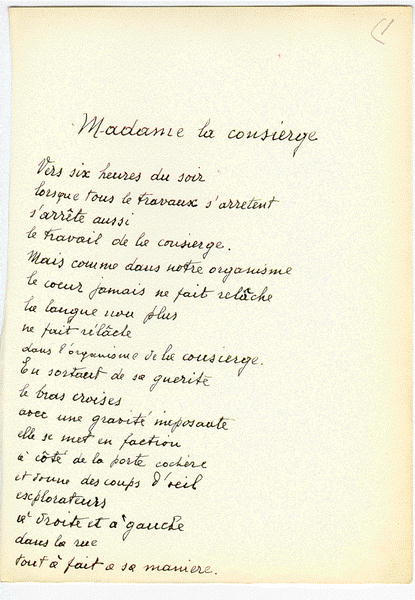 (1
Madame la consierge
Vers six heures du soir
lorsque tous le travaux s'arretent
s'arrête aussi
le travail de la consierge.
Mais comme dans notre organisme
le coeur jamais ne fait relâche
la langue non plus
ne fait rélâche
dans l'organisme de la consierge.
En sortant de sa guerite
le bras croises
avec une gravité imposante
elle se met en faction
à côté de la porte cochère
et donne des coups d'oeil
explorateurs
à droite et à gauche
dans la rue
tout à fait a sa maniere.